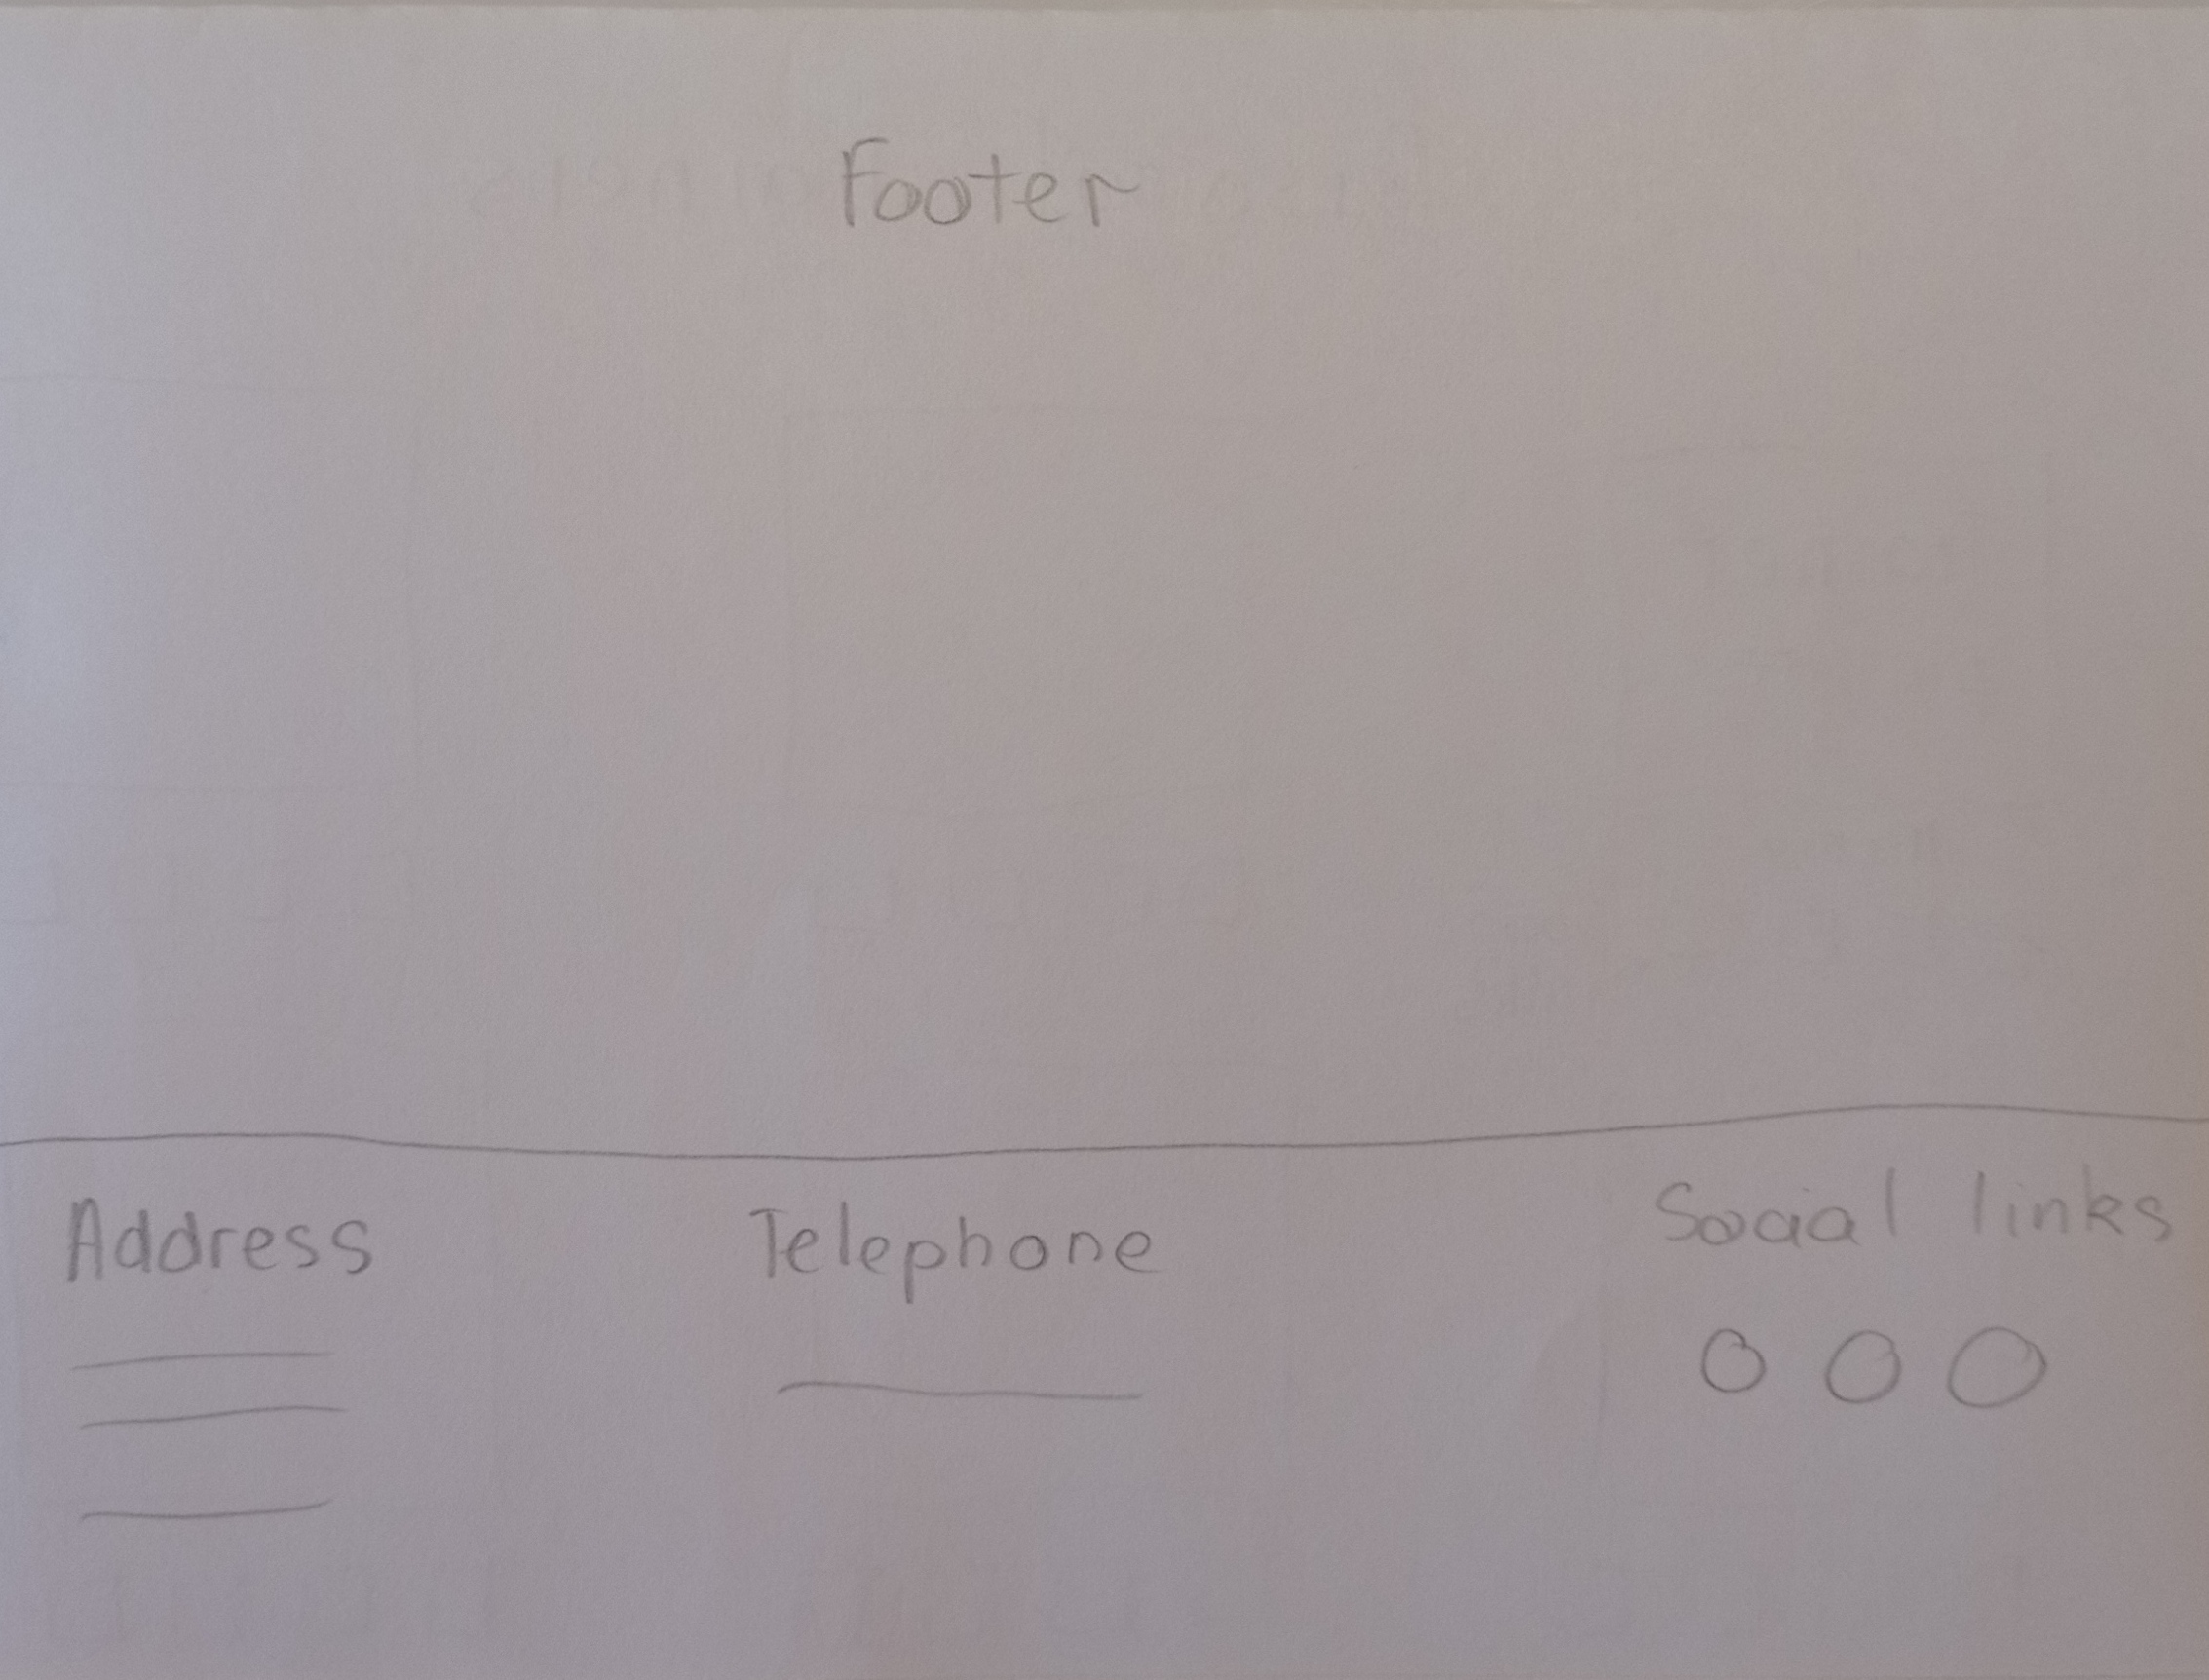 Footer
Address
Telephone
Social links